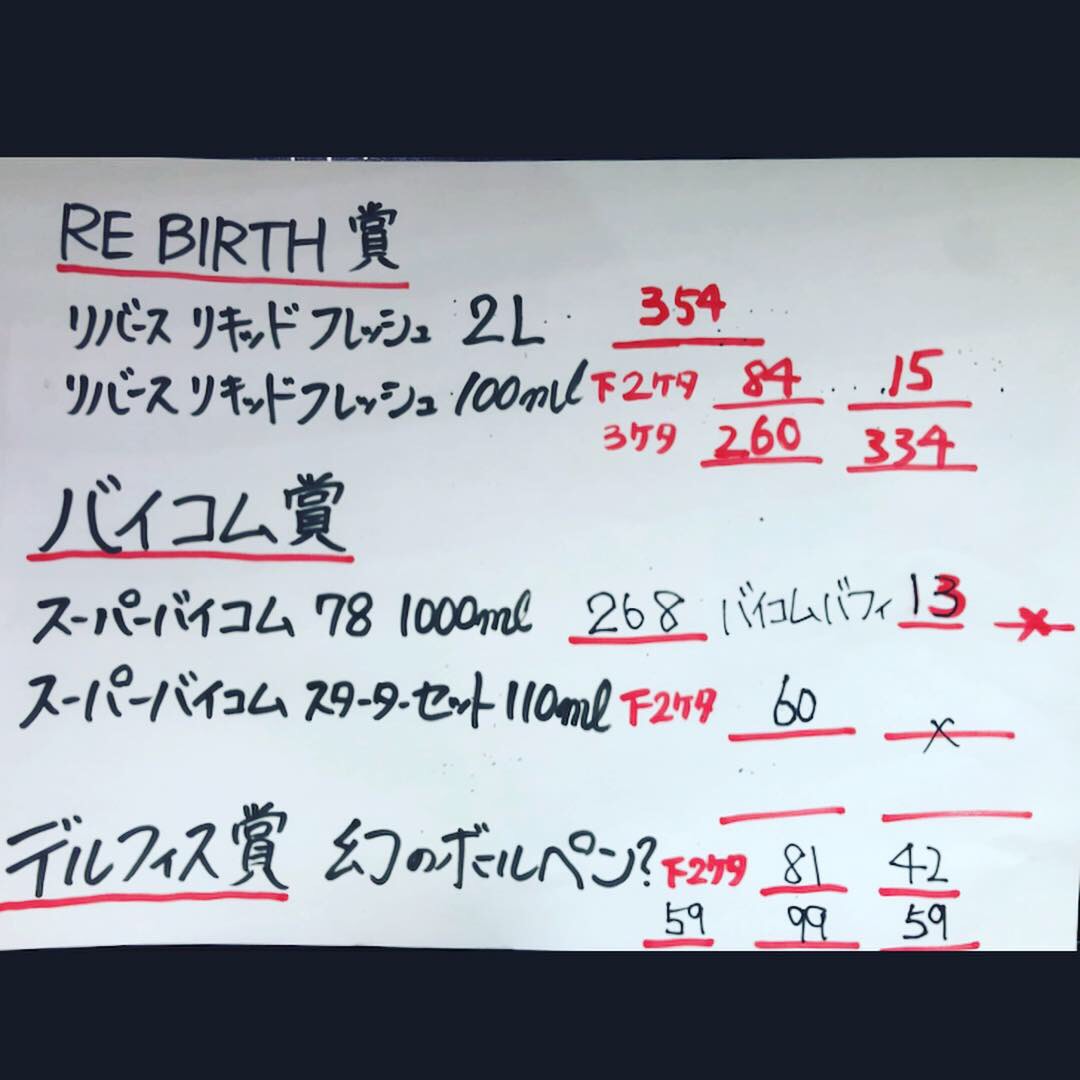 RE BIRTH 賞
リバース リキッド フレッシュ 2L 354
リバース リキッドフレッシュ 100ml 下2ケタ 84 15
3ケタ 260 334
バイコム賞
スーパーバイコム 78 1000ml 268 バイコムバフィ 13 ×
スーパーバイコム スターターセット 110ml 下2ケタ 60 ×
デルフィス賞 幻のボールペン? 下2ケタ 81 42
59 99 59